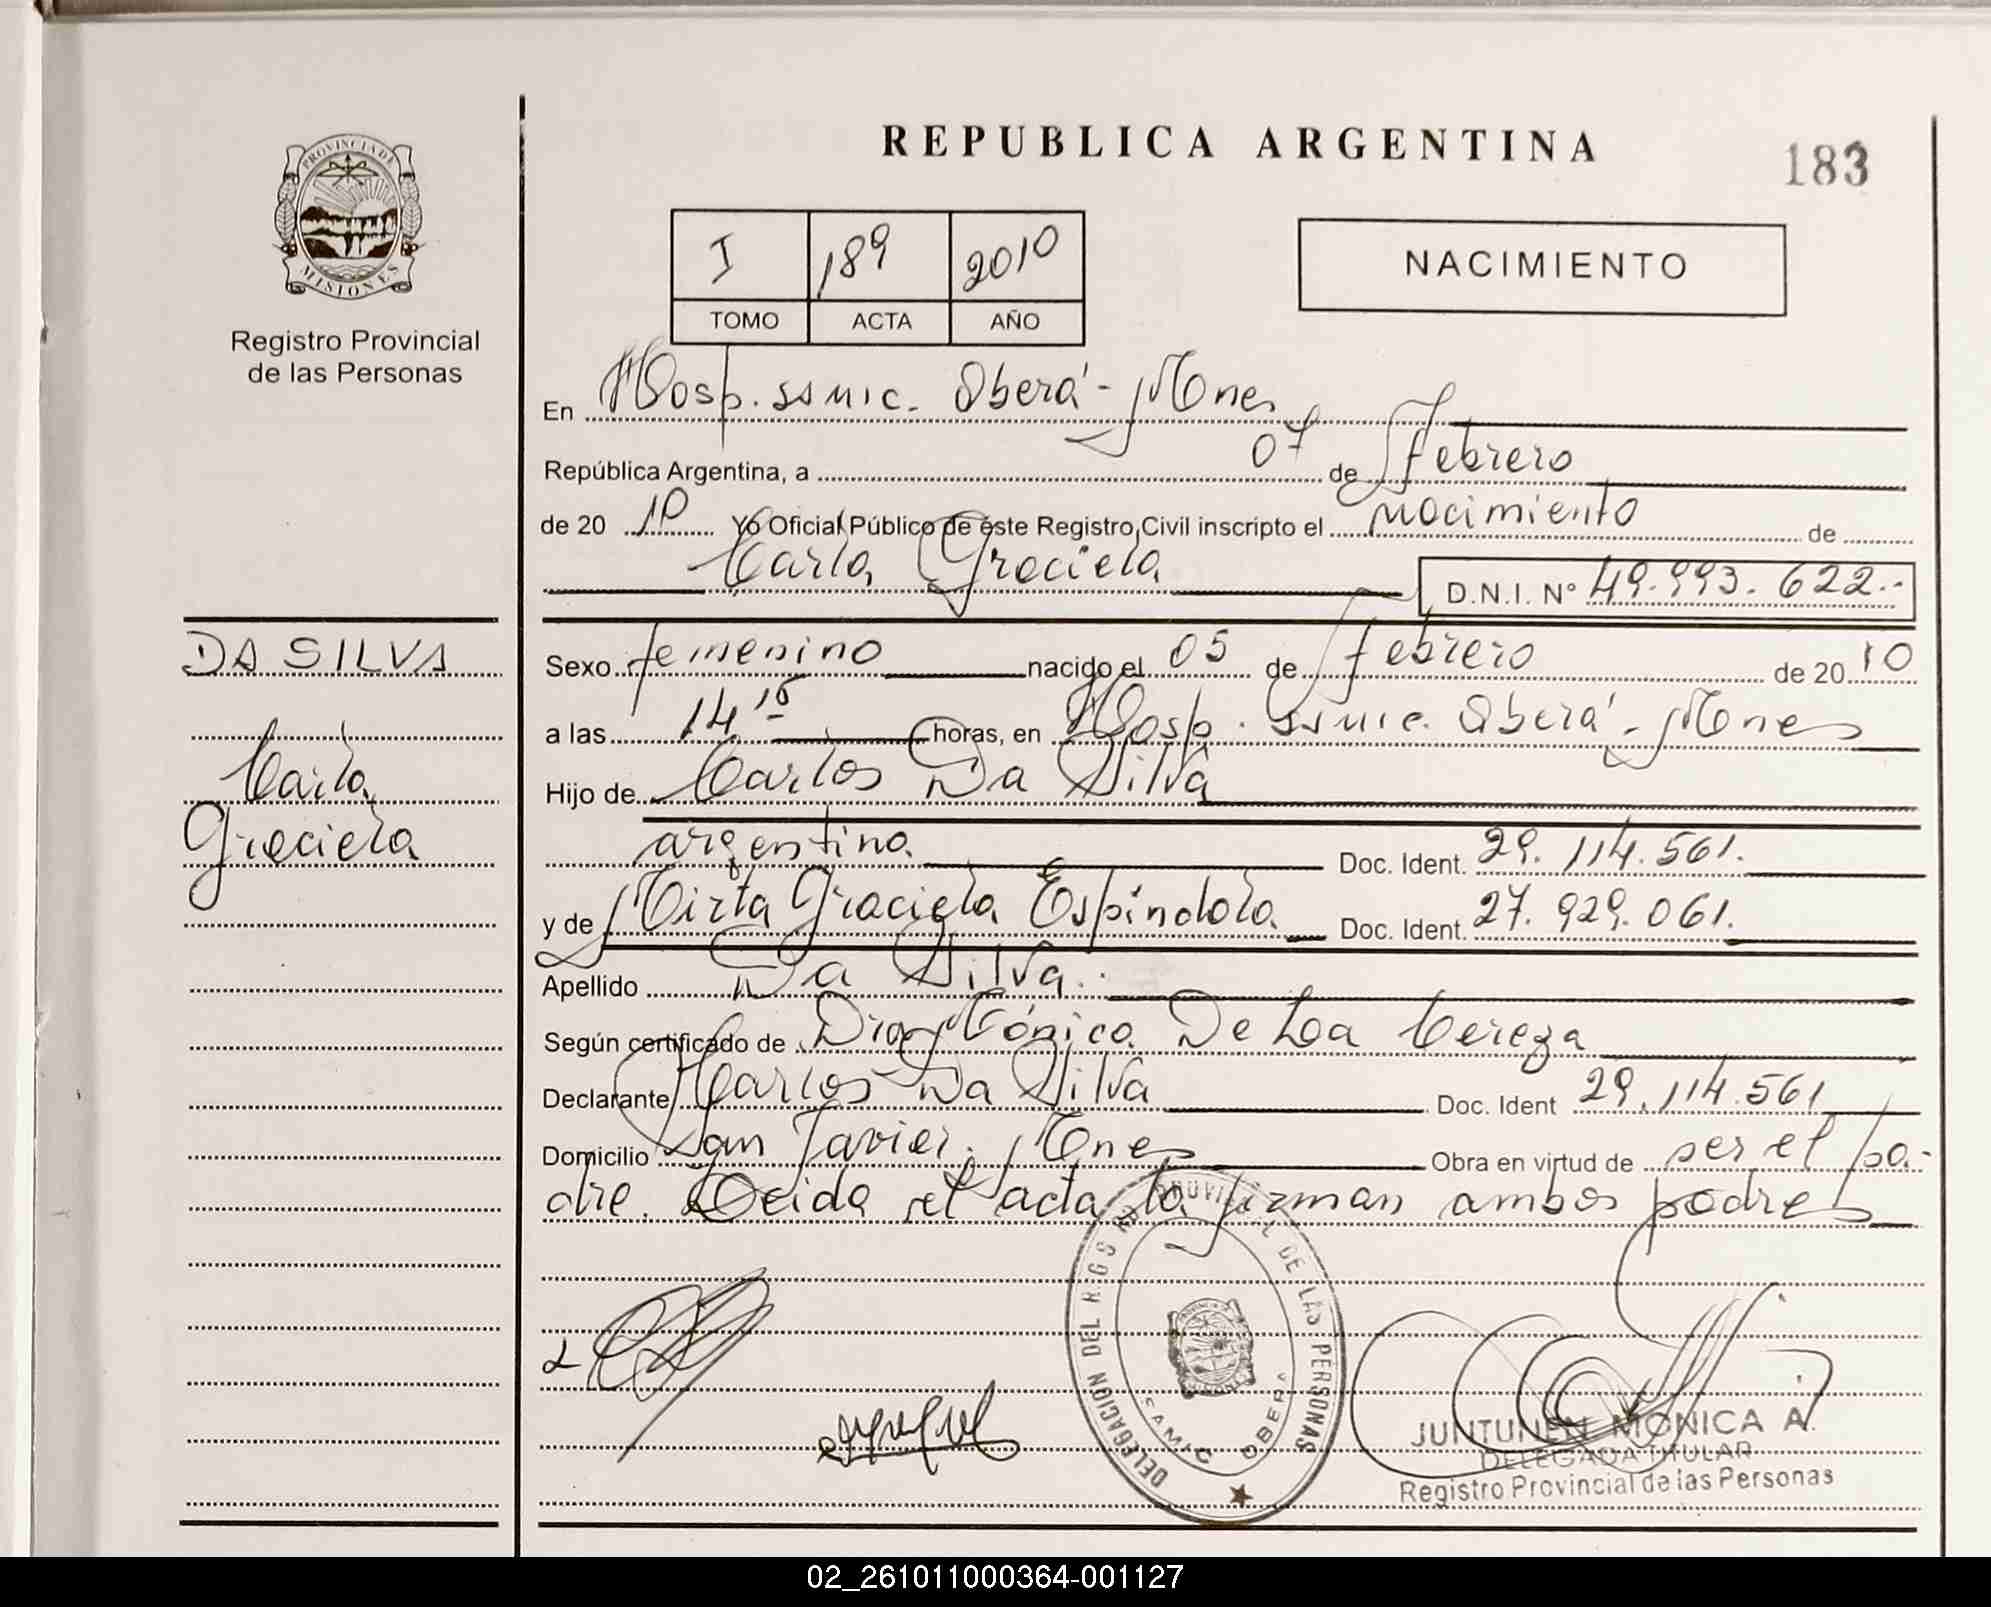 REPUBLICA ARGENTINA
183
PROVINCIA DE
MISIONES
Registro Provincial
de las Personas
I 189 2010
TOMO ACTA AÑO
NACIMIENTO
En Hosp. SSMIC. Oberá - Mones
República Argentina, a 07 de febrero
de 20 10 Yo Oficial Público de éste Registro Civil inscripto el nacimiento de
Carla Graciela D.N.I. Nº 49.993.622.-
DA SILVA
Carla
Graciela
Sexo femenino nacido el 05 de febrero de 20 10
a las 14,15 horas, en Hosp. SSMIC. Oberá - Mones
Hijo de Carlos Da Silva
argentino. Doc. Ident. 29.114.561.
y de Mirta Graciela Espindola Doc. Ident. 27.929.061.
Apellido Da Silva.
Según certificado de Dra Mónica De La Cereza
Declarante Carlos Da Silva Doc. Ident 29.114.561
Domicilio San Javier. Mones Obra en virtud de ser el pa-
dre. Leida el acta la firman ambos padres
DELEGACION DEL REG PROVINCIAL DE LAS PERSONAS
SAMIC OBERA
JUNTUNEN MONICA A.
DELEGADA TITULAR
Registro Provincial de las Personas
02_261011000364-001127